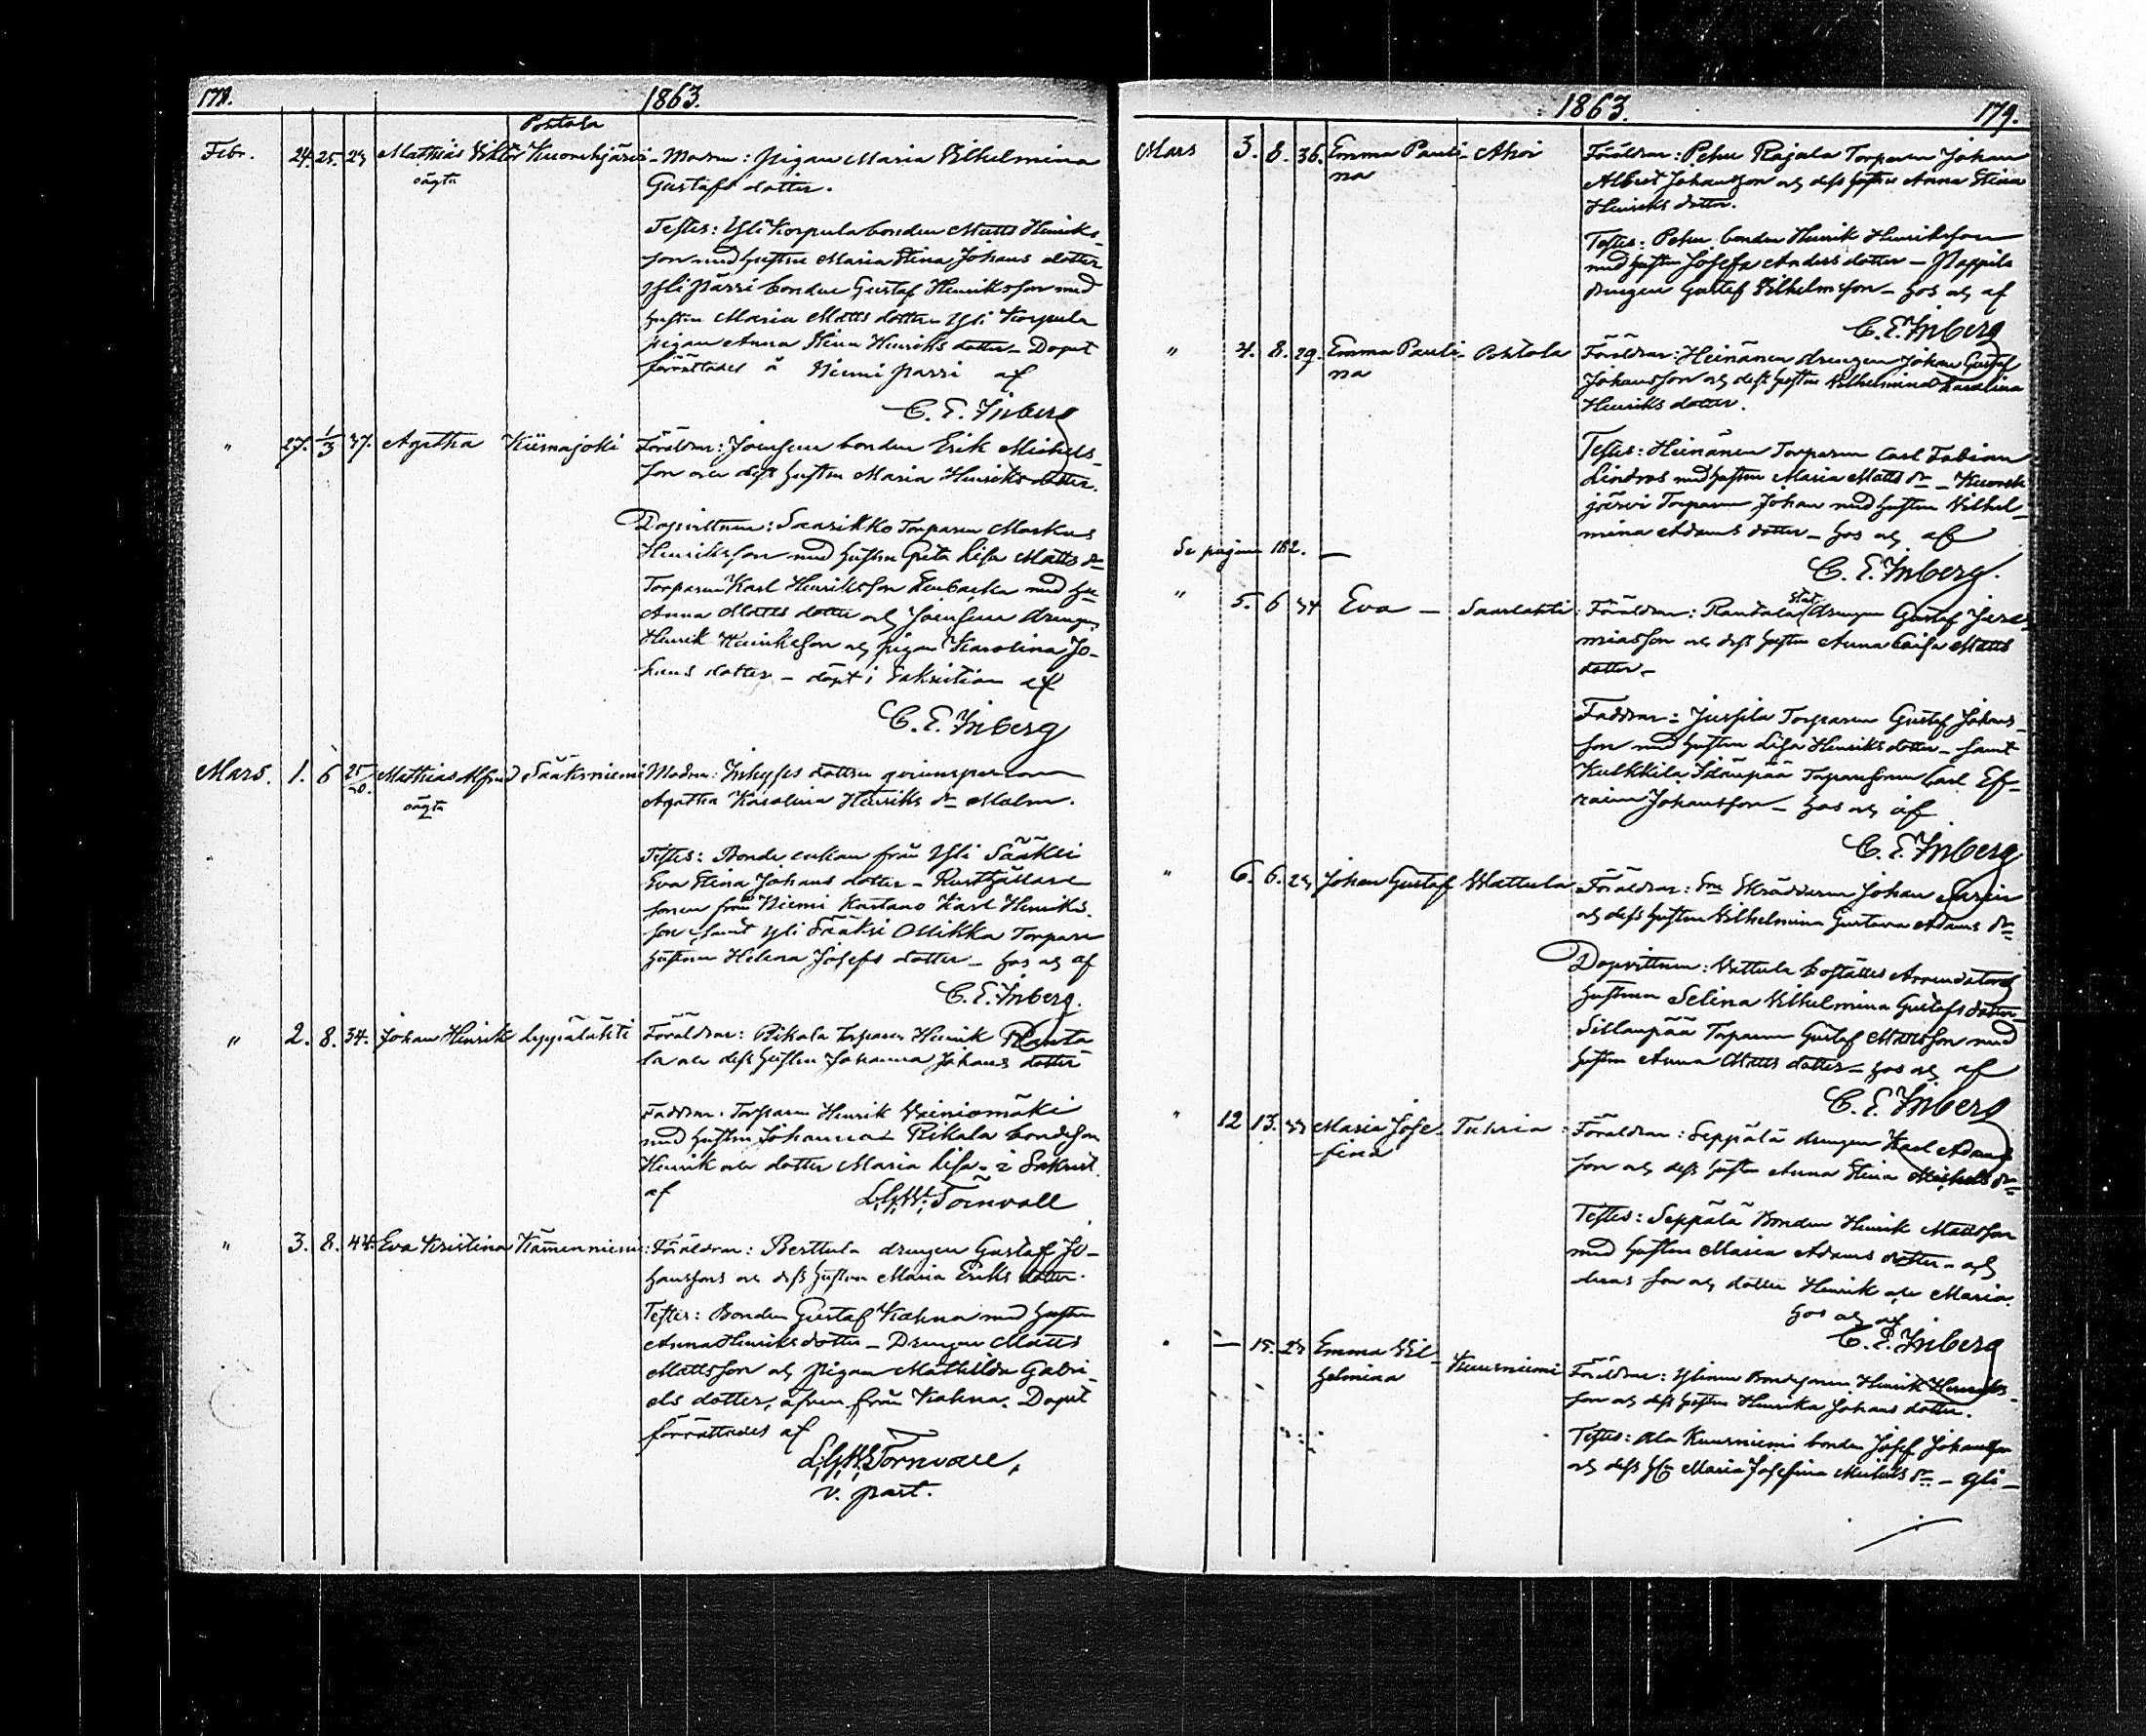 178.
1863.
Febr. 24. 25. 23 Mathias Viktor Kuorehjärvi - Modren: pigan Maria Vilhelmina
oägta
Gustafs dotter.
Testes: Yli Korpula bonden Matts Henriks-
son med hustru Maria Stina Johans dotter
Yli Pärri bonden Gustaf Henriksson med
hustru Maria Matts dotter Yli Korpula
pigan Anna Stina Henriks dotter - Dopet
förrättades å Niemi Parri af
C. E. Inberg
" 27. 1/3 37. Agatha Kiimajoki Föräldrar: bonden Erik Michels-
son och dess hustru Maria Henriks dotter.
Dopvittnen: Saarikko Torparen Markus
Henriksson med hustru Greta Lisa Matts dr
Torparen Karl Henriksson med hu
Anna Matts dotter och drengen
Henrik Henriksson och pigan Karolina Jo-
hans dotter - döpt i Sakristian af
C. E. Inberg
Mars. 1. 6 25 Mathias Alfred Sääksniemi Modren: Inhyses dottren qvinsperson
oägta
Agatha Karolina Henriks dr Malm.
Testes: Bonde enkan från Yli Sääksi
Eva Stina Johans dotter - Rusthållare
sonen från Niemi Kartano Karl Henriks-
son samt Yli Sääksi Ollikka Torpare
hustrun Helena Josefs dotter - hos och af
C. E. Inberg.
" 2. 8. 34. Johan Henrik Leppälahti Föräldrar: Rikala Torparen Henrik Ranta
la och dess hustru Johanna Johans dotter
Faddrar: Torparen Henrik Weiniomäki
med hustru Johanna - Rikala bondeson
Henrik och dotter Maria Lisa - i Sakrist.
af L. G. W. Törnvall
" 3. 8. 44. Eva Kristina Kämmenniemi: Föräldrar: Berttula drengen Gustaf Jo-
hansson och dess hustru Maria Eriks dotter.
Testes: Bonden Gustaf Kahna med hustru
Anna Henriks dotter - Drengen Matts
Mattsson och pigan Mathilda Gabri-
els dotter, äfven från Kahna. Dopet
förrättades af
L. G. W. Törnvall,
v. past.
1863.
179.
Mars 3. 8. 36. Emma Pauli- Ahoi Föräldrar: Pehu Rajala Torparen Johan
na
Albert Johansson och dess hustru Anna Stina
Henriks dotter.
Testes: Pehu bonden Henrik Henriksson
med hustru Josefa Anders dotter - Pappila
drengen Gustaf Vilhelmsson - hos och af
C. E. Inberg
" 4. 8. 29. Emma Pauli- Pohtola Föräldrar: Heinänen drengen Johan Gustaf
na
Johansson och dess hustru Vilhelmina Karolina
Henriks dotter.
Testes: Heinänen Torparen Carl Fabian
Lindros med hustru Maria Matts dr - Kuoreh
järvi Torparen Johan med hustru Vilhel-
mina Adams dotter - hos och af
C. E. Inberg.
Se pagina 182. -
" 5. 6 34 Eva - Saarlahti: Föräldrar: Rantala Stat drengen Gustaf Jere-
miasson och dess hustru Anna Caisa Matts
dotter -
Faddrar: Jussila Torparen Gustaf Johans-
son med hustru Lisa Henriks dotter - samt
Kulkkila Torparesonen Carl Ef-
raim Johansson - hos och af
C. E. Inberg
" 6. 6. 23 Johan Gustaf Wattula Föräldrar: Skräddaren Johan
och dess hustru Vilhelmina Gustava Adams dr
Dopvittnen: Wattula boställes Arrendators
hustrun Selina Vilhelmina Gustafs dotter -
Sillanpää Torparen Gustaf Mattsson med
hustru Anna Matts dotter - hos och af
C. E. Inberg
" 12 13. 33 Maria Jose- Tuhria: Föräldrar: Seppälä drengen Karl Adams
fina
son och dess hustru Anna Stina Michels dr
Testes: Seppälä Bonden Henrik Mattsson
med hustru Maria Adams dotter - och
deras son och dotter Henrik och Maria.
hos och af
C. E. Inberg
" — 15. 23 Emma Vil- Kuusniemi Föräldrar: Ylinen Bondsonen Henrik Henriks-
helmina
son och dess hustru Henrika Johans dotter.
Testes: Ala Kuusniemi bonden Josef Johansson
och dess hu Maria Josefina Michels dr - Yli -